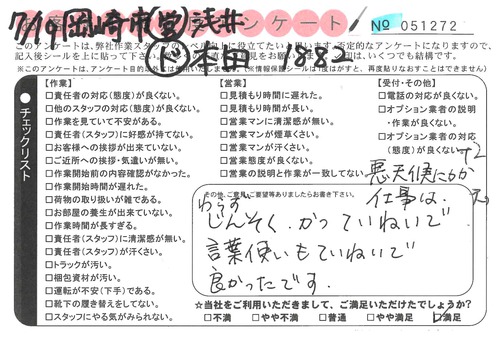 7/19 岡崎市(営)浅井
アンケート
№ 051272
(ド)本田 1882
チェックリスト
【作業】
□責任者の対応(態度)が良くない。
□他のスタッフの対応(態度)が良くない。
□作業を見ていて不安がある。
□責任者(スタッフ)に好感が持てない。
□お客様への挨拶が出来ていない。
□ご近所への挨拶・気遣いが無い。
□作業開始前の内容確認がなかった。
□作業開始時間が遅れた。
□荷物の取り扱いが雑である。
□お部屋の養生が出来ていない。
□作業時間が長すぎる。
□責任者(スタッフ)に清潔感が無い。
□責任者(スタッフ)が汗くさい。
□トラックが汚い。
□梱包資材が汚い。
□運転が不安(下手)である。
□靴下の履き替えをしてない。
□スタッフにやる気がみられない。
【営業】
□見積もり時間に遅れた。
□見積もり時間が長い。
□営業マンに清潔感が無い。
□営業マンが煙草くさい。
□営業マンが汗くさい。
□営業態度が良くない。
□営業の説明と作業が一致してない。
【受付・その他】
□電話の対応が良くない。
□オプション業者の説明・作業が良くない。
□オプション業者の対応(態度)が良くない。
その他、ご意見、ご要望等ありましたらお書き下さい。
悪天候にもか
かわらず 仕事は
じんそく、かつ ていねいで
言葉使いもていねいで
良かったです。
☆当社をご利用いただきまして、ご満足いただけたでしょうか?
□不満 □やや不満 □普通 □やや満足 ☑満足